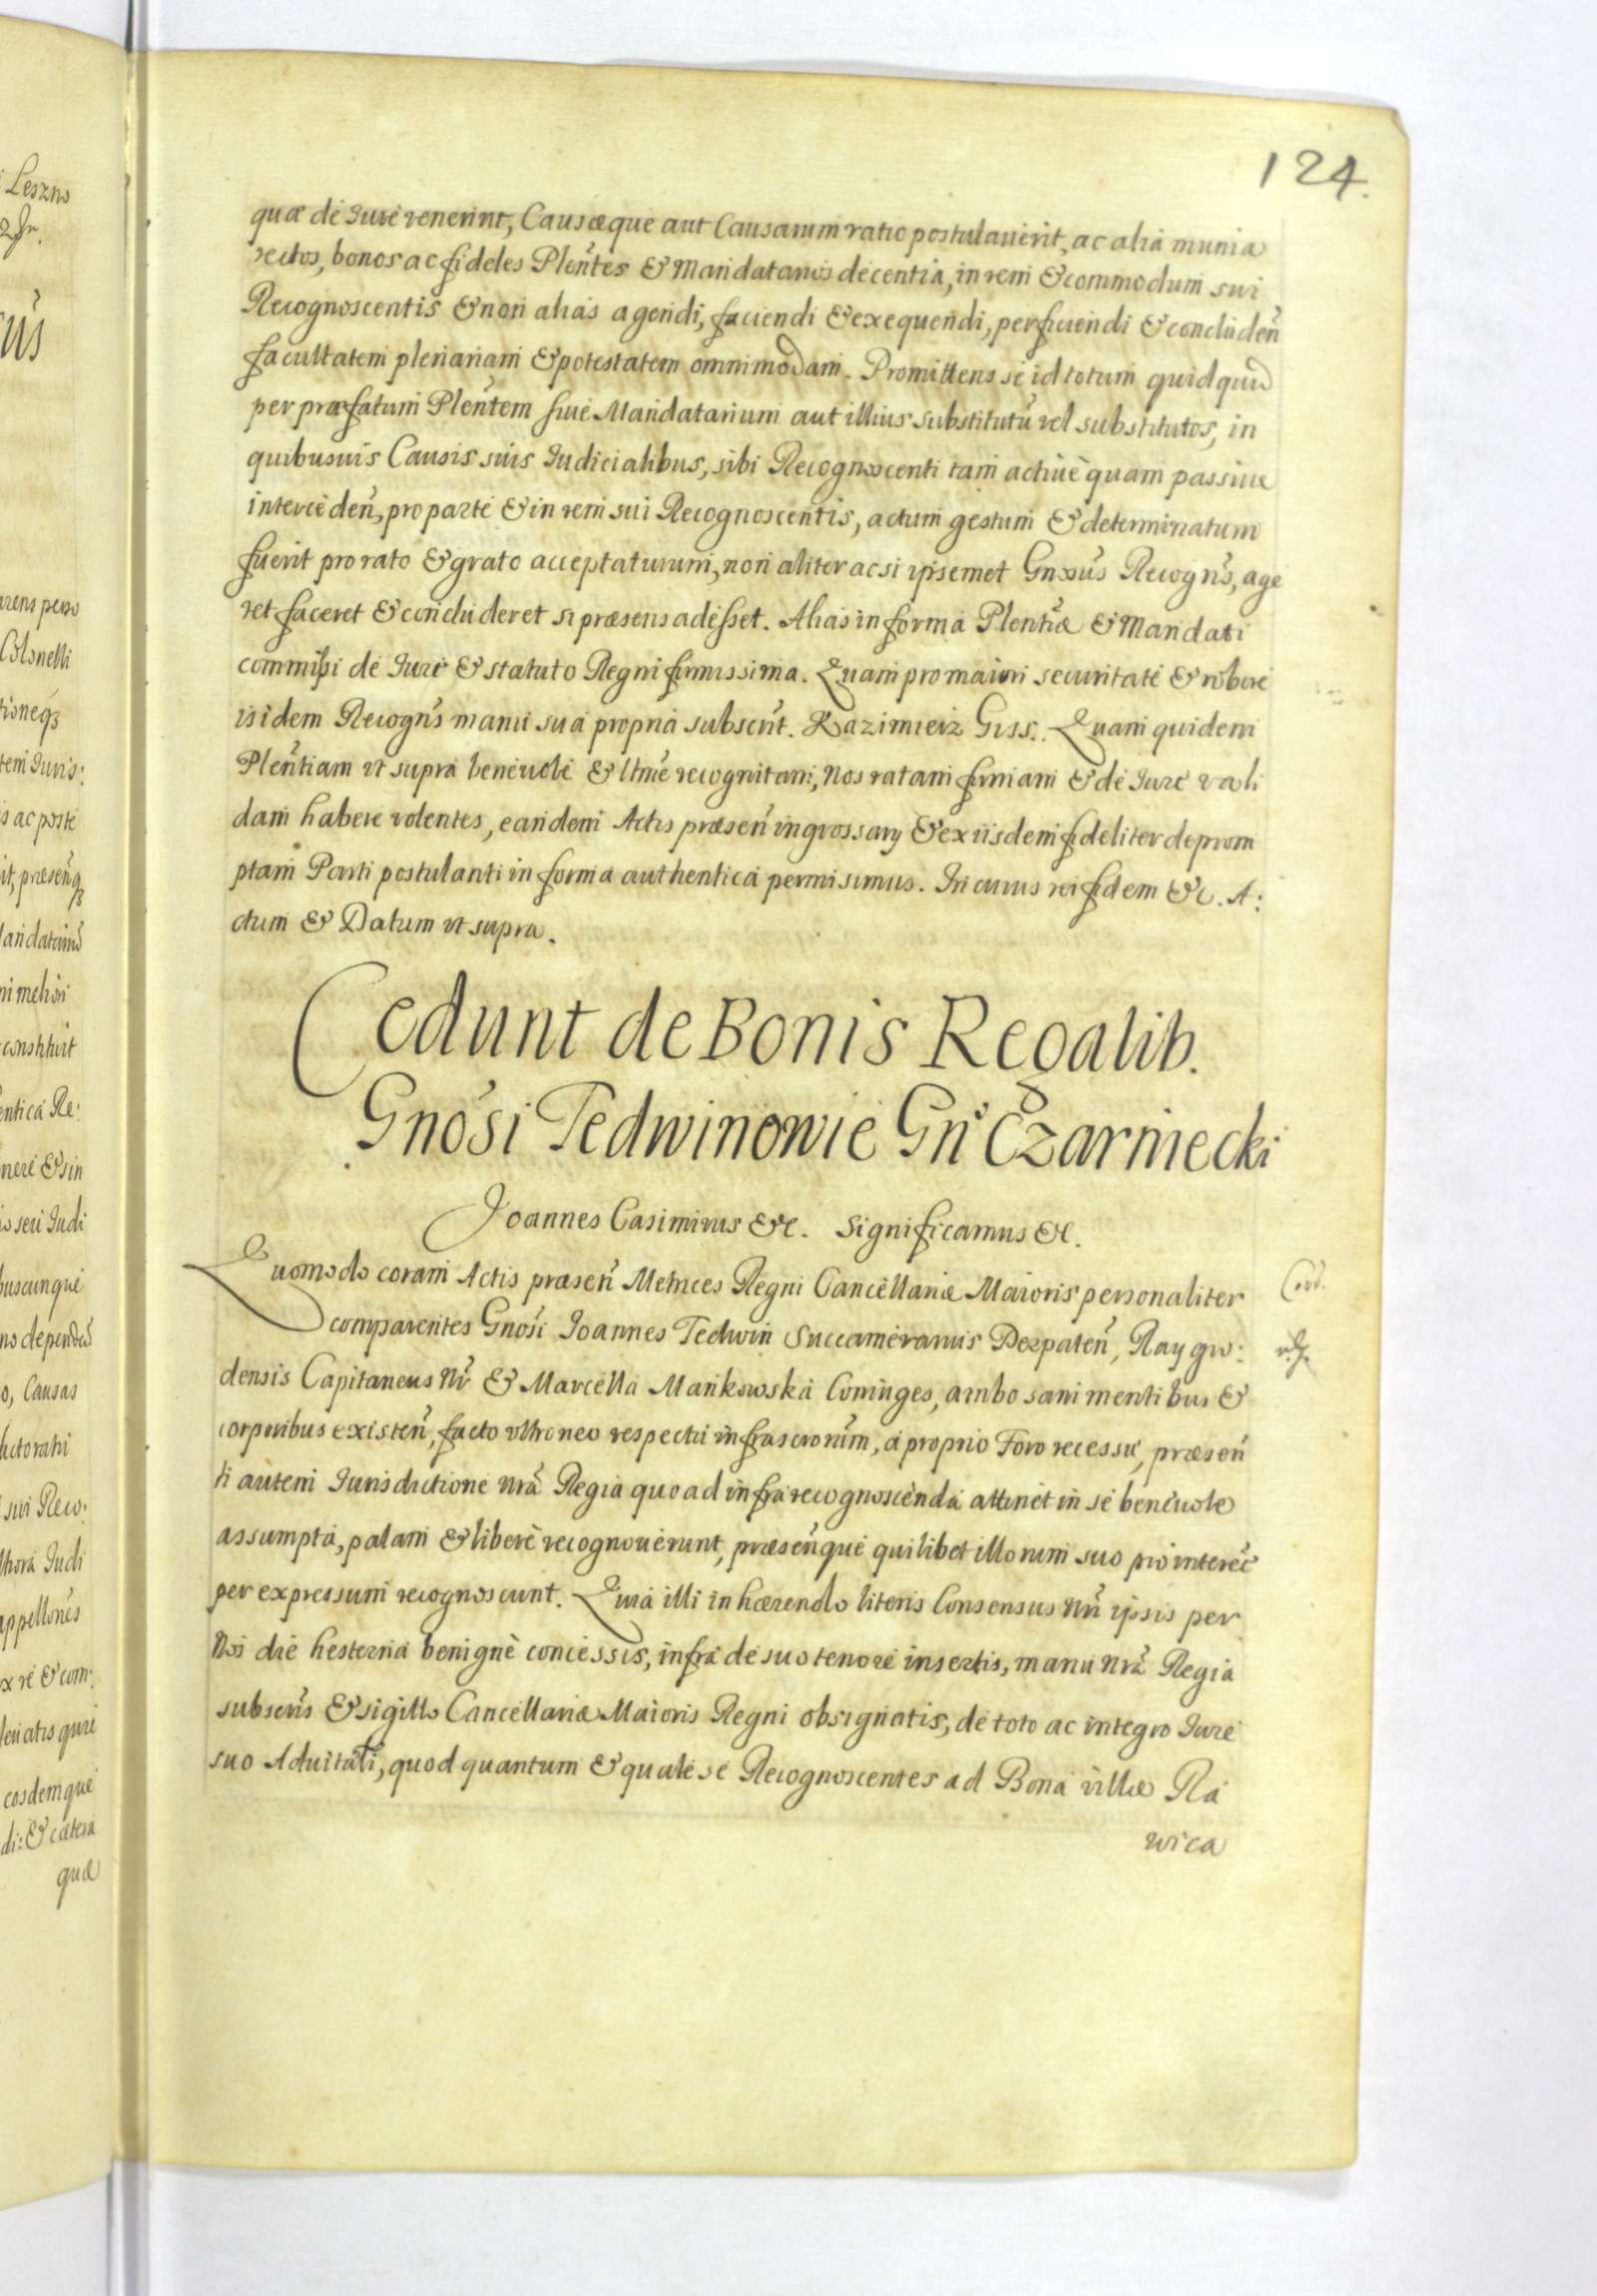 124.
quæ de Iure venerint, Causæque aut Causarum ratio postulaverit, ac alia munia
rectos, bonos ac fideles Plentes & Mandatarios decentia, in rem & commodum sui
Recognoscentis & non alias agendi, faciendi & exequendi, perficiendi & concluden
facultatem plenariam & potestatem omnimodam. Promittens se id totum quidquid
per præfatum Plentem sive Mandatarium aut illius substitutū vel substitutos, in
quibusuis Causis suis Iudicialibus, sibi Recognoscenti tam actiuè quam passiue
interceden, pro parte & in rem sui Recognoscentis, actum gestum & determinatum
fuerit pro rato & grato acceptaturum, non aliter ac si ipsemet Gnosus Recogns, age
ret faceret & concluderet si præsens adesset. Alias in forma Plentiæ & Mandati
commissi de Iure & statuto Regni firmissima. Quam pro maiori securitate & robore
isidem Recogns manu sua propria subscrit. Kazimierz Giss. Quam quidem
Plentiam vt supra beneuole & ltme recognitam, Nos ratam firmam & de Iure vali
dam habere volentes, eandem Actis præsen ingrossary & ex iisdem fideliter deprom
ptam Parti postulanti in forma authentica permisimus. In cuius rei fidem &c. A:
ctum & Datum vt supra.
Cedunt de Bonis Regalib.
Gnosi Tedwinowie Gn Czarniecki
Joannes Casimirus &c. Significamus &c.
Quomodo coram Actis præsen Metrices Regni Cancellariæ Maioris personaliter
comparentes Gnosi Ioannes Tedwin Succamerarius Derpaten, Raygro:
densis Capitaneus Nr & Marcella Mankowska Coniuges, ambo sani mentibus &
corporibus existen, facto vltroneo respectu infrascrorum, a proprio Foro recessu, præsen
ti autem Iurisdictione nra Regia quo ad infra recognoscenda attinet in se beneuole
assumpta, palam & liberè recognouerunt, præsenque quilibet illorum suo pro interee
per expressum recognoscunt. Quia illi inhærendo literis Consensus Nri ipsis per
Nos die hesterna benignè concessis, infra de suo tenore insertis, manu Nra Regia
subscris & sigillo Cancellariæ Maioris Regni obsignatis, de toto ac integro Iure
suo Aduitali, quod quantum & quale se Recognoscentes ad Bona villæ Ra
wica